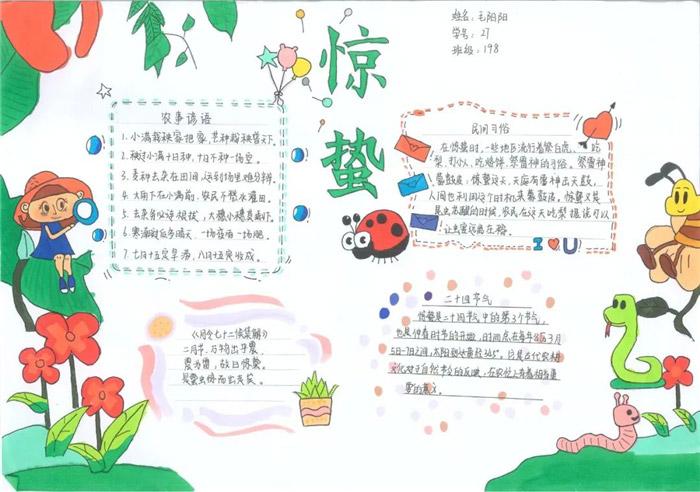 姓名:毛阳阳
学号:27
班级:198
惊蛰
农事谚语
1.小满栽秧家把家,芒种栽秧普天下。
2.秧过小满十日种,十日不种一场空。
3.麦种去杂在田间,运到场里难分辨。
4.大雨下在小满前,农民不愁水灌田。
5.去杂务必连根拔,
6.寒潮时至多晴天,一场夜雨一场肥。
7.七月十五定旱涝,八月十五定收成。
民间习俗
在惊蛰日,一些地区流行着祭白虎、吃
梨、打小人、吃烙饼、祭雷神的习俗。祭雷神
蒙鼓皮:惊蛰这天,天庭有雷神击天鼓,
人间也利用这个时机来蒙鼓皮。惊蛰又是
昆虫苏醒的时候,农民在这天吃梨
让虫害远离庄稼。
I U
《月令七十二候集解》
二月节,万物出乎震,
震为雷,故曰惊蛰。
是蛰虫惊而出走矣。
二十四节气
惊蛰是二十四节气中的第3个节气,
也是仲春时节的开始,时间点在每年公历3月
5日-7日之间,太阳到达黄经345°。它是古代农耕
文化对于自然节令的反映,在农忙上有着相当重
要的意义。